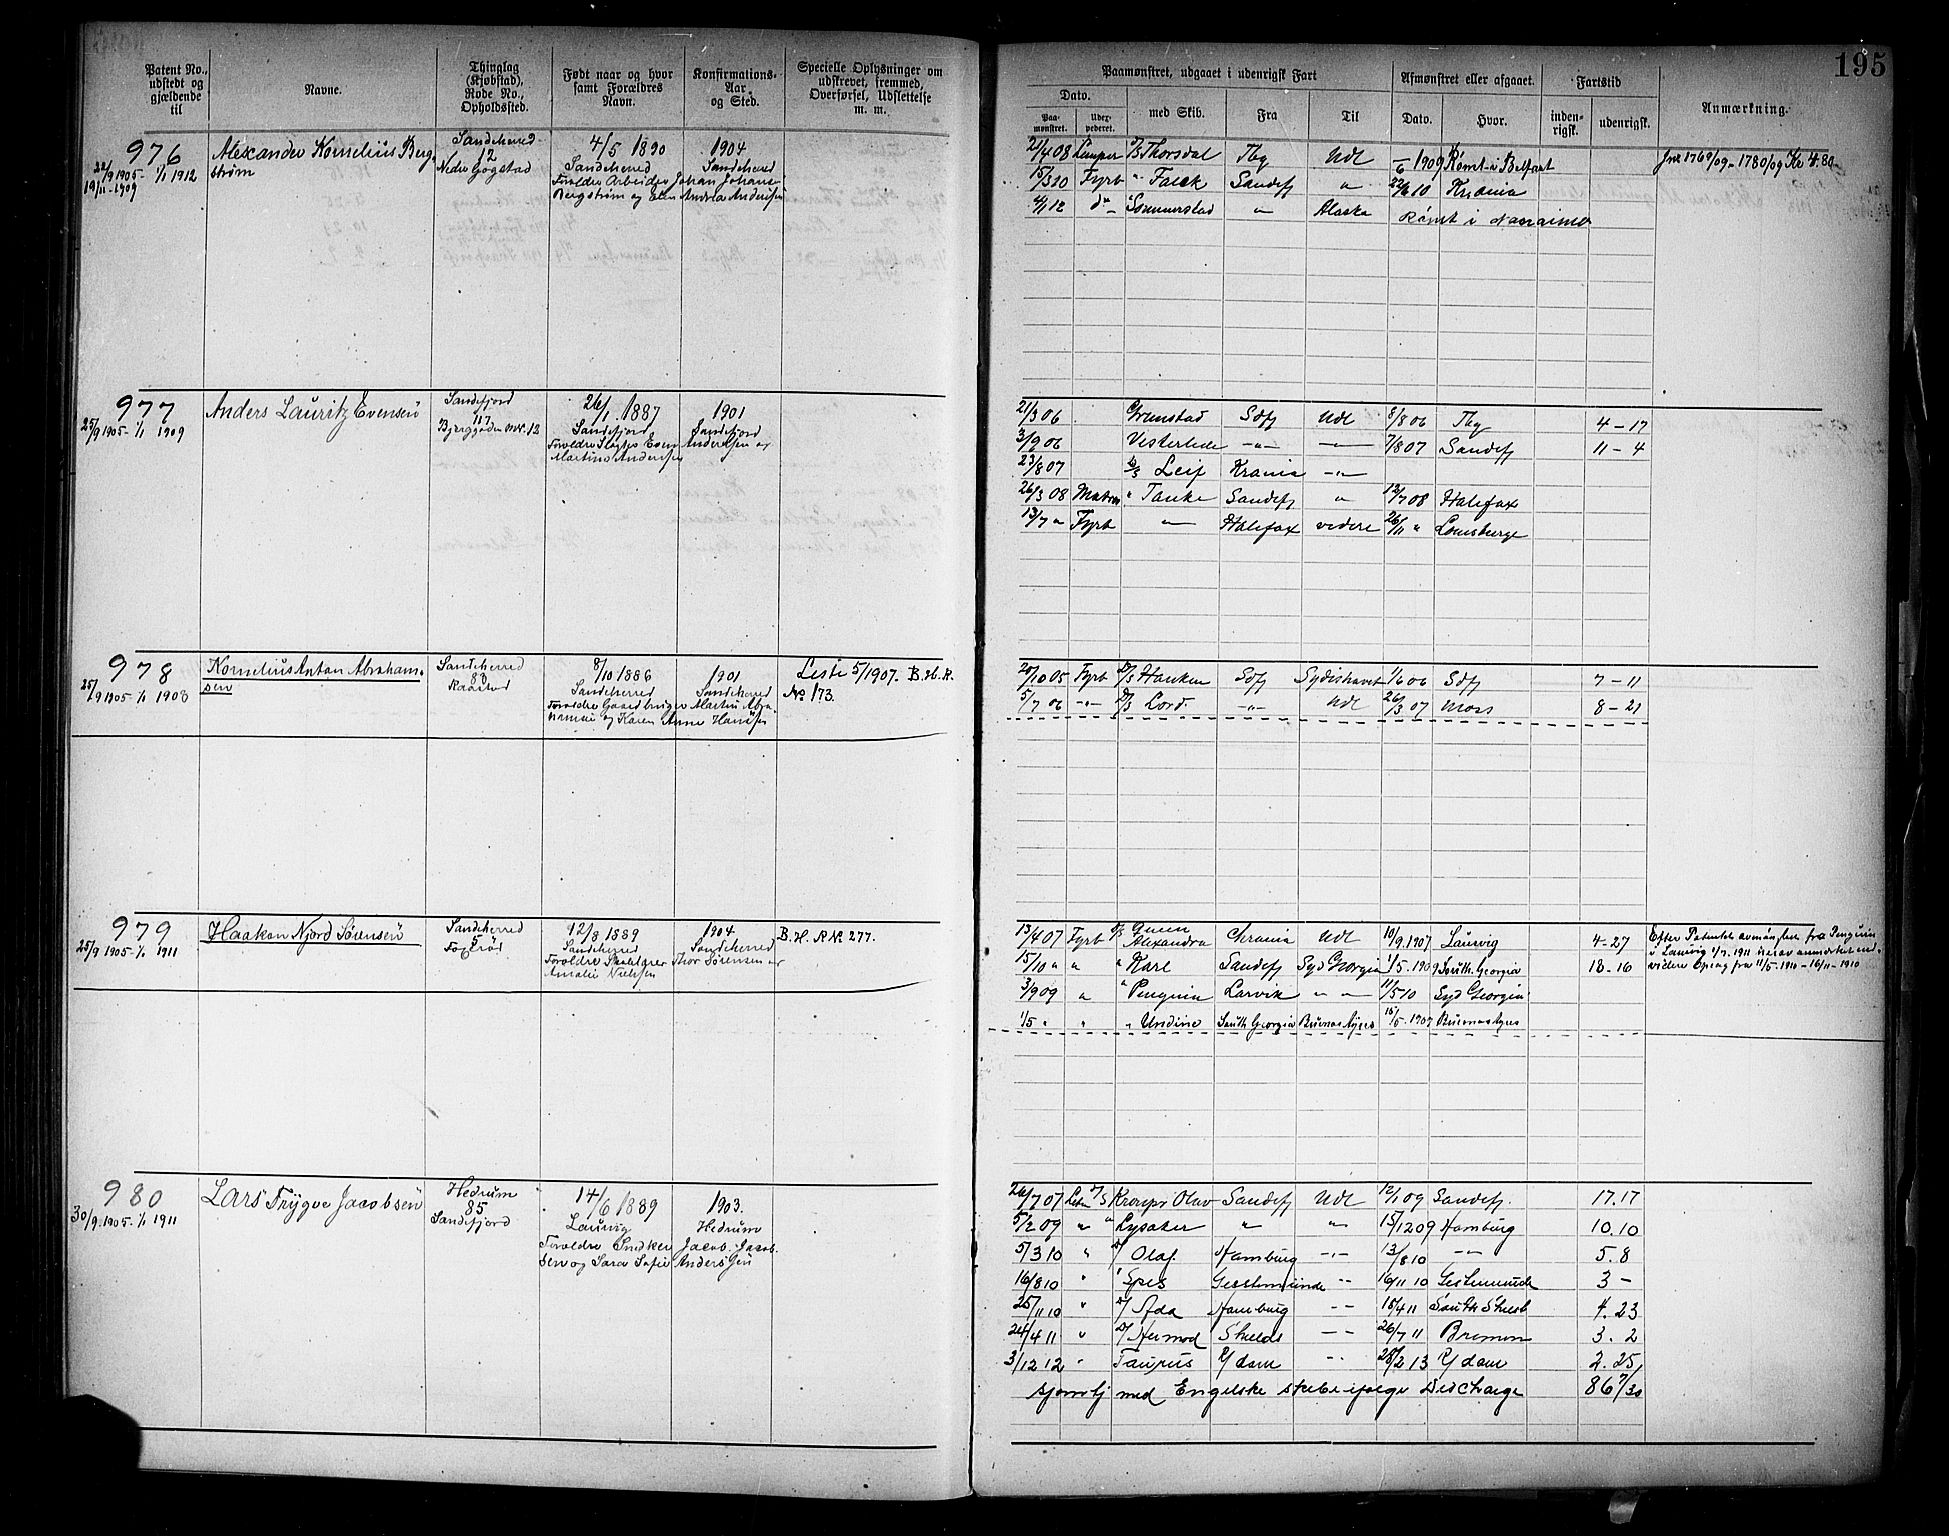 195
Patent No., udstedt og gjældende til
Navne.
Thinglag (Kjøbstad), Rode No., Opholdssted.
Født naar og hvor samt Forældres Navn.
Konfirmations-Aar og Sted.
Specielle Oplysninger om udskrevet, fremmed, Overførsel, Udslettelse m. m.
Paamønstret, udgaaet i udenrigsk Fart
Dato.
Paamønstret.
Udexpederet.
med Skib.
Fra
Til
Afmønstret eller afgaaet.
Dato.
Hvor.
Fartstid
indenrigsk.
udenrigsk.
Anmærkning.
976
25/9 1905 - 1/1 1912
19/11 - 1909
Alexander Kornelius Bergstrøm
Sandeherred
12
Nedre Gogstad
4/5 1890
Sandeherred
Forældre Arbeider Johan Johansen
Bergstrøm og Elen Andrea Andersen
1904
Sandeherred
21/4 08 Lemper D/S Thorsdal Tbg Udl -/6 1909 Rømt i Belfast
Jnr 1769/09 - 1780/09 Kr 4.80
15/3 10 Fyrb " Falck Sandefj " 22/8 10 Kr.ania
4/1 12 do Sommerstad " Alaska Rømt i Nanaimo
977
25/9 1905 - 1/1 1909
Anders Lauritz Evensen
Sandefjord
117
Bjerggaden No. 12
26/1 1887
Sandefjord
Forældre Slagter Even Andersen og
Martine Andersen
1901
Sandefjord
21/3 06 Grimstad Sdfj Udl 8/8 06 Tbg 4 - 17
3/9 06 Vesterlide -"- -"- 7/8 07 Sandefj 11 - 4
23/8 07 D/S Leif Kr.ania -"-
26/3 08 Matros " Tanke Sandefj " 12/7 08 Halifax
13/7 " Fyrb -"- Halifax videre 26/11 " Louisburge
978
25/9 1905 - 1/1 1908
Kornelius Anton Abrahamsen
Sandeherred
83
Raastad
8/10 1886
Sandeherred
Forældre Gaardbruger Martin Abrahamsen og Karen Anne Hansen
1901
Sandeherred
Liste 5/1907. B. H. R.
No 173.
20/10 05 Fyrb D/S Hauken Sdfj Sydishavet 1/6 06 Sdfj 7 - 11
5/7 06 -"- D/S Lord -"- Udl 26/3 07 Moss 8 - 21
979
25/9 1905 - 1/1 1911
Haakon Njord Sørensen
Sandeherred
5
Fogsrød
12/8 1889
Sandeherred
Forældre Skolelærer Thor Sørensen og
Amalie Nielsen
1904
Sandeherred
B. H. R No 277.
13/4 07 Fyrb D/S Queen Alexandra Chrania Udl 10/9 1907 Laurvig 4 - 27
15/10 " " " Karl Sandefj Syd Georgia 1/5 1909 South Georgia 18 - 16
3/9 09 " " Penguin Larvik " - 11/5 10 Syd Georgia
1/5 " " " Undine South Georgia Buenos Ayres 15/5 1909 Buenos Ayres
Efter Patentet avmønstret fra Penguin
i Laurvig 1/7 1911
videre Opsag fra 11/5 - 1910 - 16/11 - 1910
980
30/9 1905 - 1/1 1911
Lars Trygve Jacobsen
Hedrum
85
Sandefjord
14/6 1889
Laurvig
Forældre Snedker Jacob Jacobsen og Sara Sofie Andersen
1903.
Hedrum
26/7 07 D/S Kronpr Olav Sandefj Udl 12/1 09 Sandefj. 17.17
5/2 09 " " Lysaker " " 15/12 09 Hamburg 10.10
5/3 10 " D/ Olaf. Hamburg -"- 13/8 10 -"- 5.8
16/8 10 " " Geestemünde -- 16/11 10 Gestemunde 3 -
25/11 10 " D/ Ada Hamburg -- 18/4 11 South Shield 4.23
24/4 11 " D/ Hermod Shields -- 26/7 11 Bremen 3.2
3/12 12 " Taurus R/dam -- 28/2 13 R/dam 2.25
med Engelske skibe ifølge Discharge 86 7/30